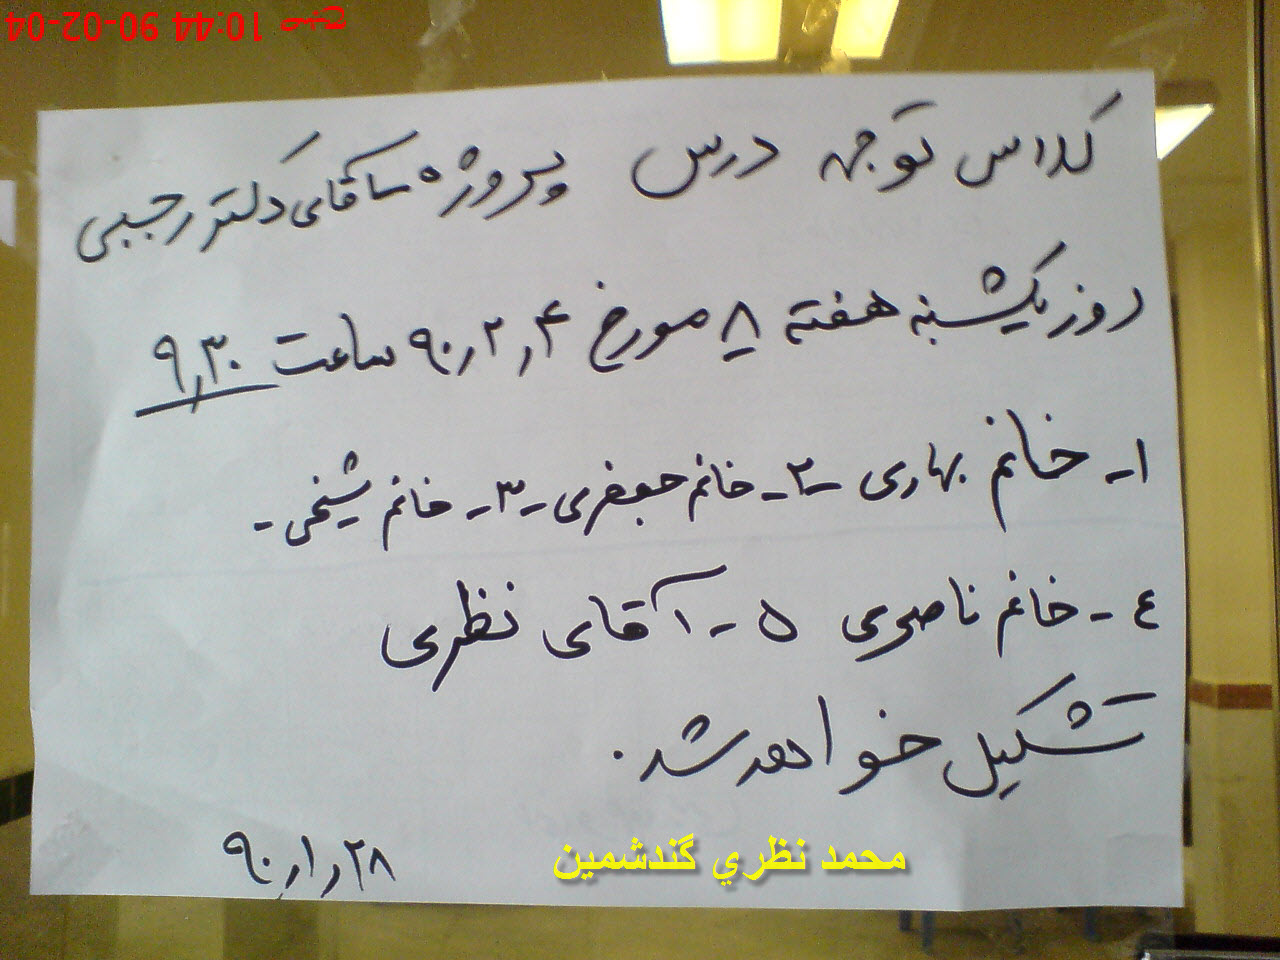 صبح 10:44 90-02-04
کلاس توجیه درس پروژه با آقای دکتر رجبی
روز یکشنبه هفته ۸ مورخ ۹۰٫۲٫۴ ساعت ۹٫۳۰
۱- خانم بهاری -۲- خانم جعفری -۳- خانم شیخی -
٤- خانم ناصری ۵- آقای نظری
تشکیل خواهد شد.
۹۰٫۱٫۲۸
محمد نظري گندشمين